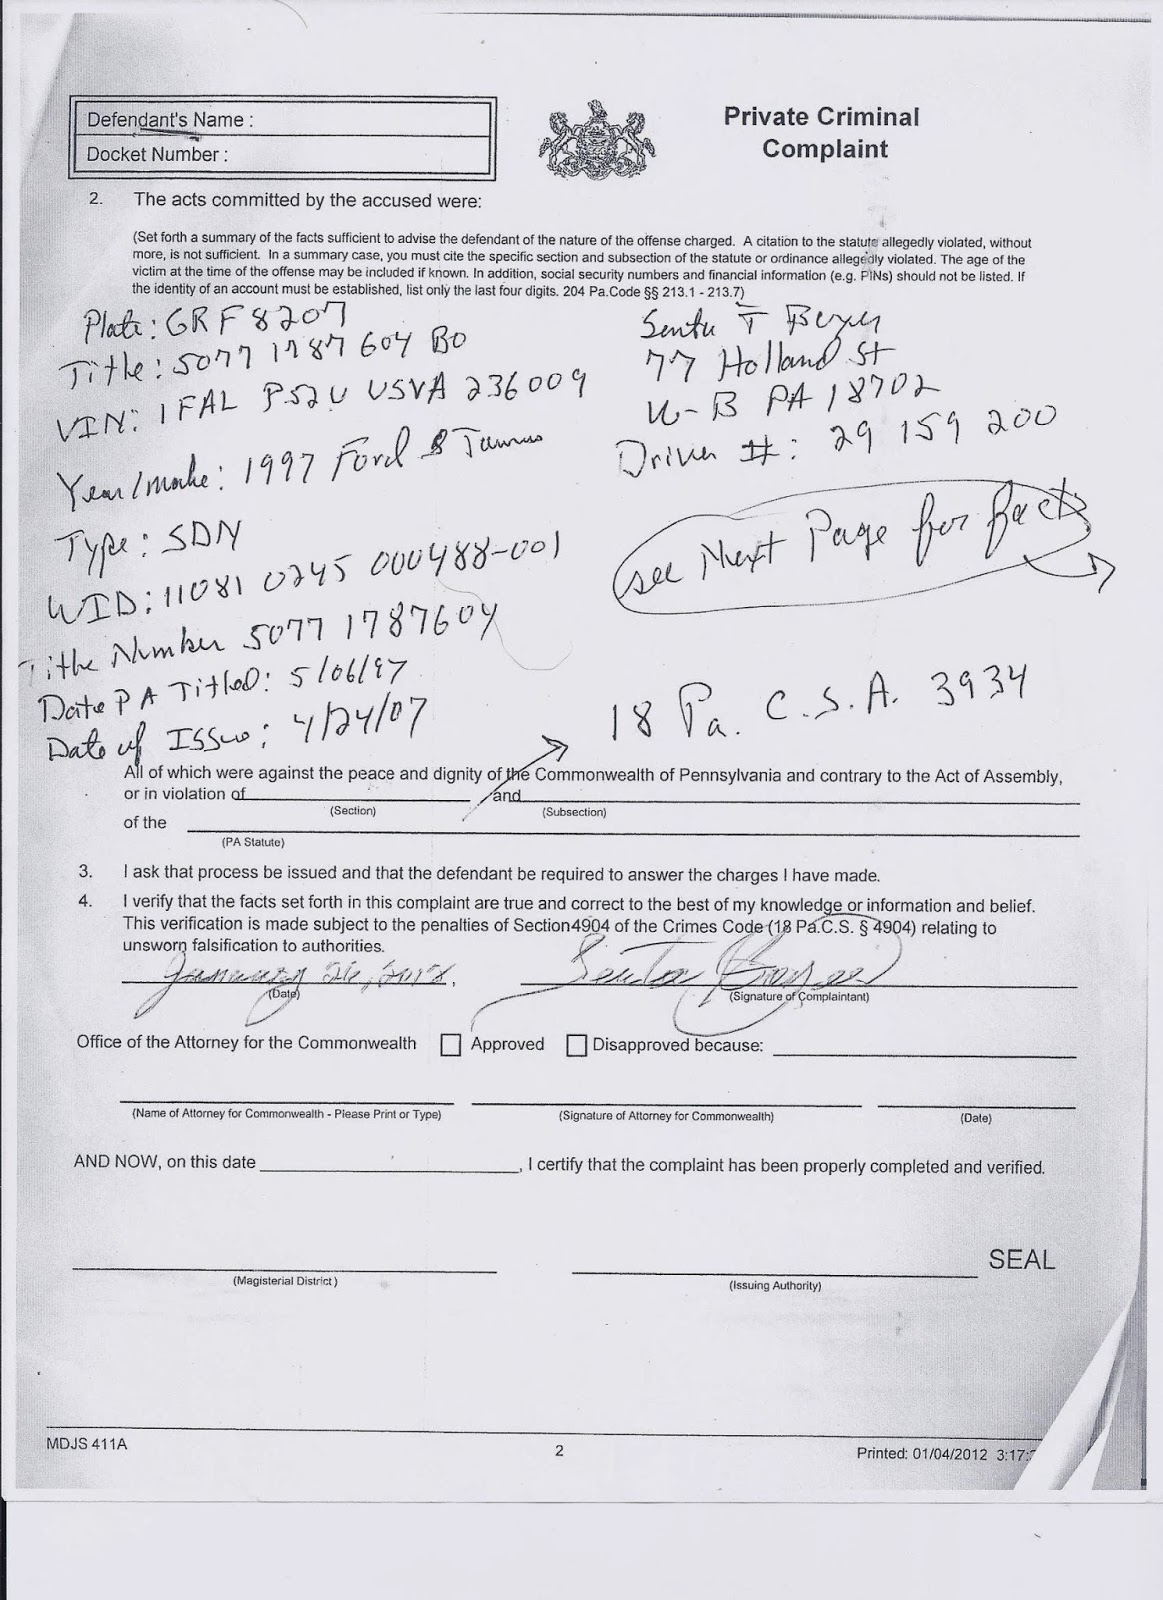 Defendant's Name :
Docket Number :
Private Criminal
Complaint
2. The acts committed by the accused were:
(Set forth a summary of the facts sufficient to advise the defendant of the nature of the offense charged. A citation to the statute allegedly violated, without
more, is not sufficient. In a summary case, you must cite the specific section and subsection of the statute or ordinance allegedly violated. The age of the
victim at the time of the offense may be included if known. In addition, social security numbers and financial information (e.g. PINs) should not be listed. If
the identity of an account must be established, list only the last four digits. 204 Pa.Code §§ 213.1 - 213.7)
Plate: GRF 8207
Title: 5077 1787 604 BO
VIN: 1FAL P52U USVA 236009
Year/make: 1997 Ford Taurus
Type: SDN
WID: 11081 0245 000488-001
Title Number 5077 1787604
Date PA Titled: 5/06/97
Date of Issue: 4/24/07
T
77 Holland St
W-B PA 18702
Driver #: 29 159 200
see Next Page for facts
18 Pa. C.S.A. 3934
All of which were against the peace and dignity of the Commonwealth of Pennsylvania and contrary to the Act of Assembly,
or in violation of and
(Section) (Subsection)
of the
(PA Statute)
3. I ask that process be issued and that the defendant be required to answer the charges I have made.
4. I verify that the facts set forth in this complaint are true and correct to the best of my knowledge or information and belief.
This verification is made subject to the penalties of Section4904 of the Crimes Code (18 Pa.C.S. § 4904) relating to
unsworn falsification to authorities.
January 26, 2012,
(Date) (Signature of Complaintant)
Office of the Attorney for the Commonwealth Approved Disapproved because:
(Name of Attorney for Commonwealth - Please Print or Type) (Signature of Attorney for Commonwealth) (Date)
AND NOW, on this date , I certify that the complaint has been properly completed and verified.
SEAL
(Magisterial District) (Issuing Authority)
MDJS 411A 2 Printed: 01/04/2012 3:17: